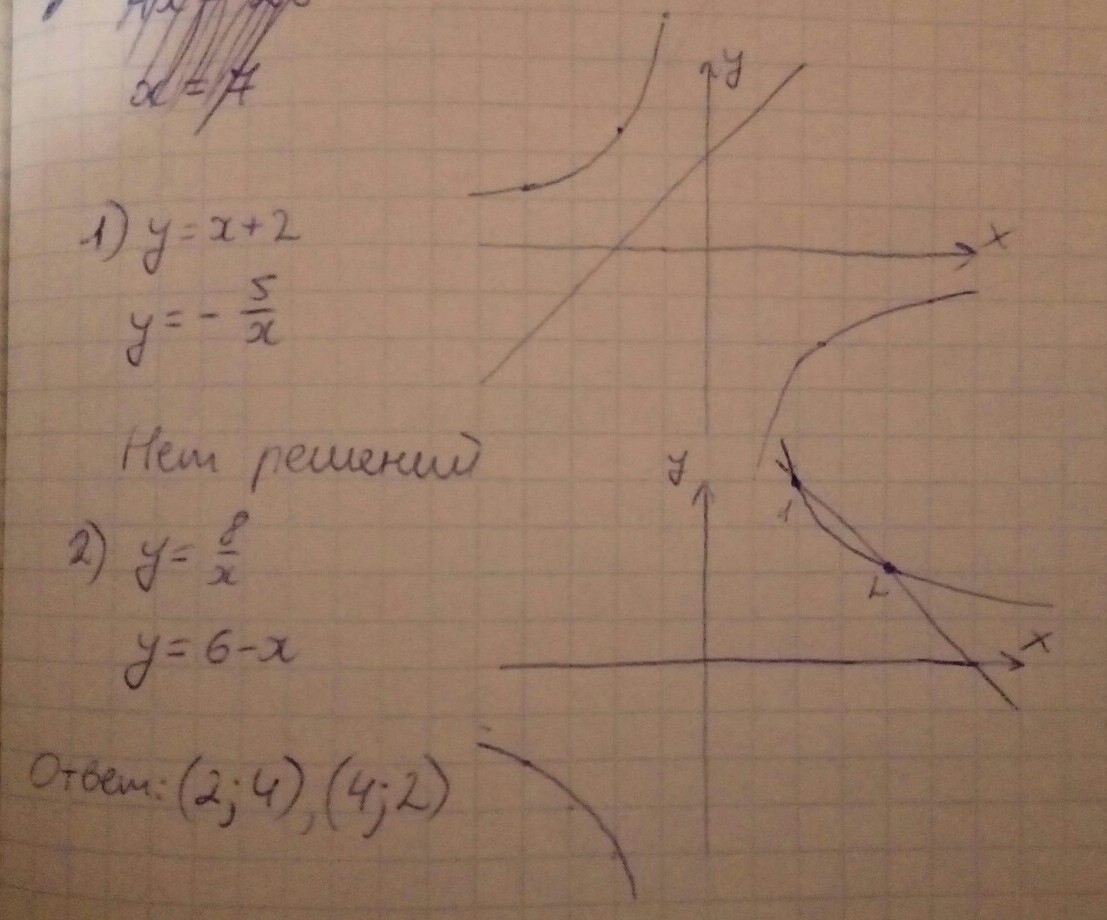 x = 7
y
x
1) y = x + 2
y = - 5/x
Нет решений
y
1
2
2) y = 8/x
y = 6 - x
x
Ответ: (2; 4), (4; 2)